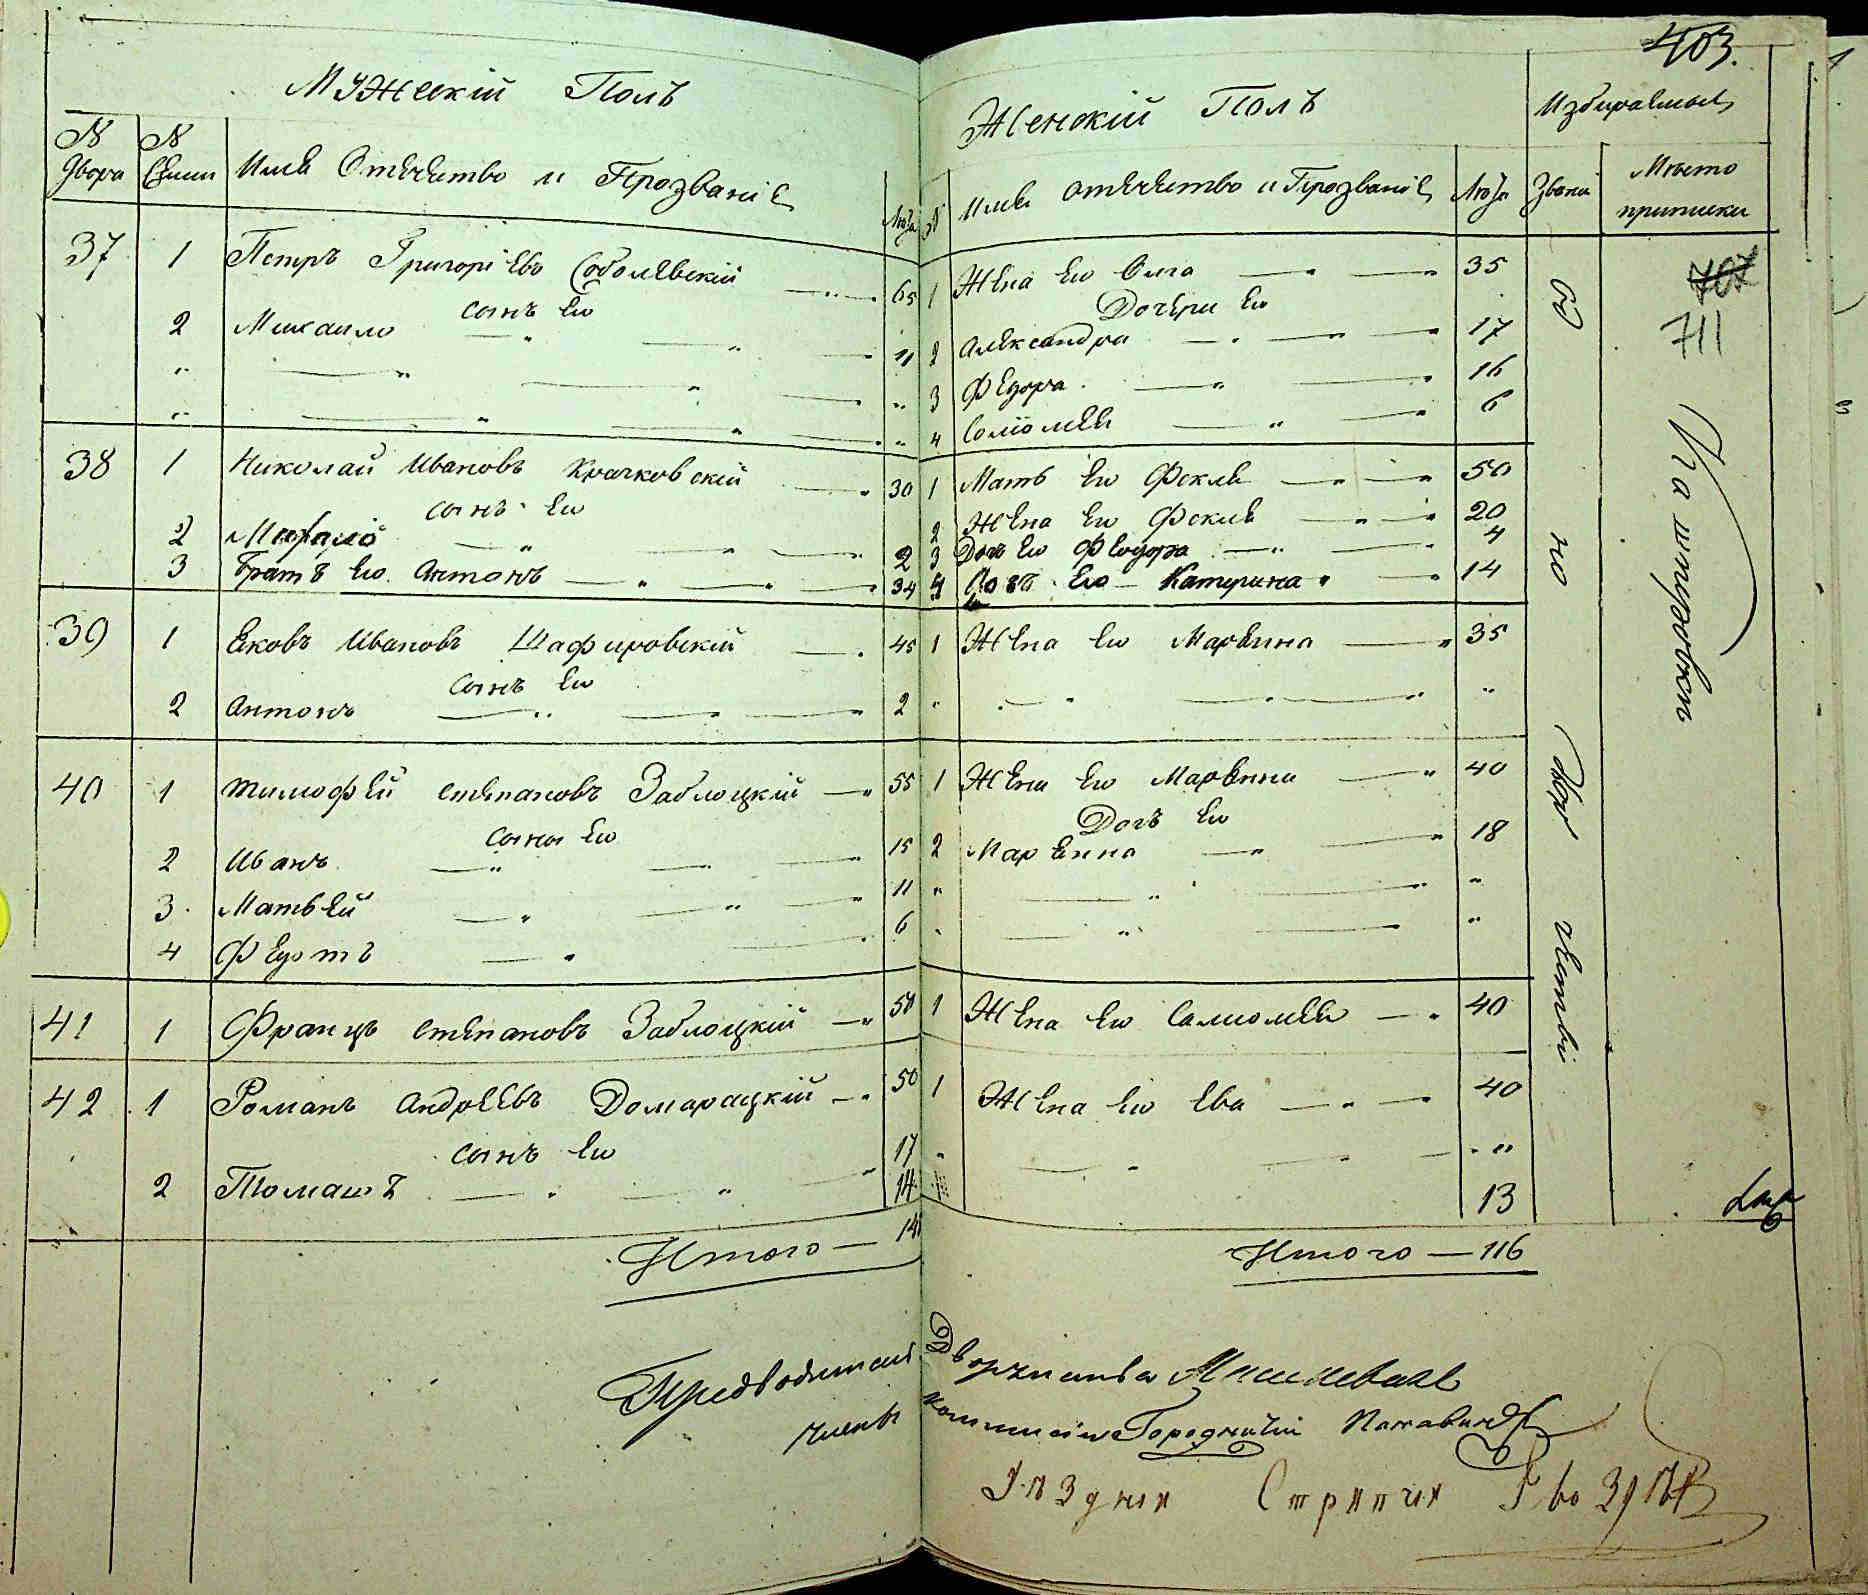 403.
Мужескій Полъ
Женскій Полъ
Избираемыя
№ Двора № Семьи Имя Отечество и Прозваніе Люта № Имя отечество и Прозваніе Люта Званіе Мѣсто приписки
37 1 Петръ Григоріевъ Соболевскій 65 1 Жена его Олга 35
сынъ его Дочери его
2 Михаило 11 2 Александра 17
" " 3 Федора 16
" " 4 Соломея 6
707
711
38 1 Николай Ивановъ Крачковскій 30 1 Мать его Фекля 50
сынъ его 2 Жена его Фекля 20
2 2 3 Дочь его Федора 4
3 Братъ его Антонъ 34 4 его Катерина 14
39 1 Яковъ Ивановъ Шафировскій 45 1 Жена его Марянна 35
сынъ его
2 Антонъ 2 " "
40 1 Тимофей степановъ Заблоцкій 55 1 Жена его Марянна 40
сыны его Дочь его
2 Иванъ 15 2 Марянна 18
3 Матвей 11 " "
4 Федотъ 6 " "
41 1 Францъ степановъ Заблоцкій 50 1 Жена его Саломея 40
42 1 Романъ Андреевъ Домарацкій 50 1 Жена его Ева 40
сынъ его 17 " "
2 Томашъ 14 13
Итого — 14
Итого — 116
Предводитель Дворянства
члены коммисіи Городничій
Уѣздный Стряпчій